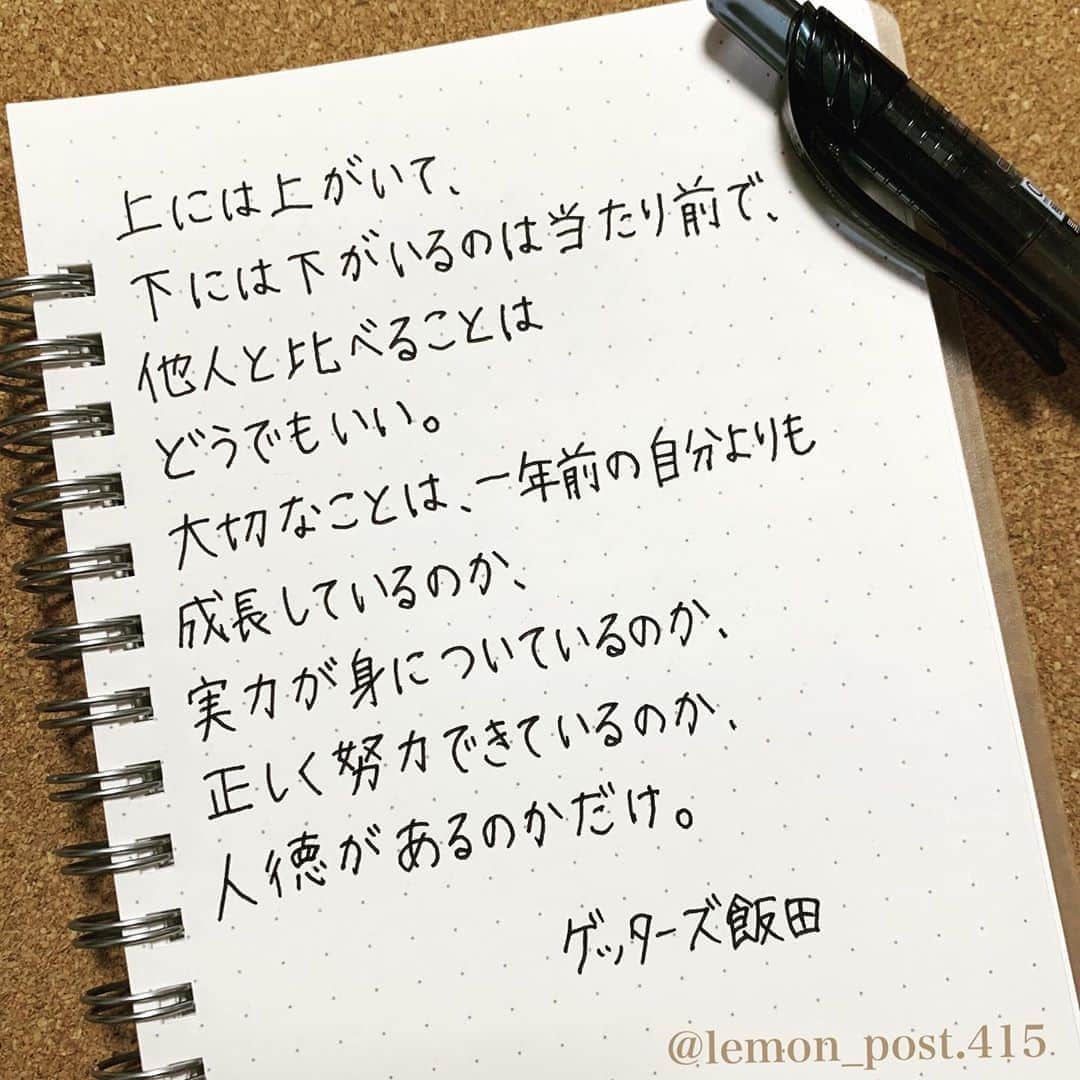 上には上がいて、
下には下がいるのは当たり前で、
他人と比べることは
どうでもいい。
大切なことは、一年前の自分よりも
成長しているのか、
実力が身についているのか、
正しく努力できているのか、
人徳があるのかだけ。
ゲッターズ飯田
@lemon_post.415